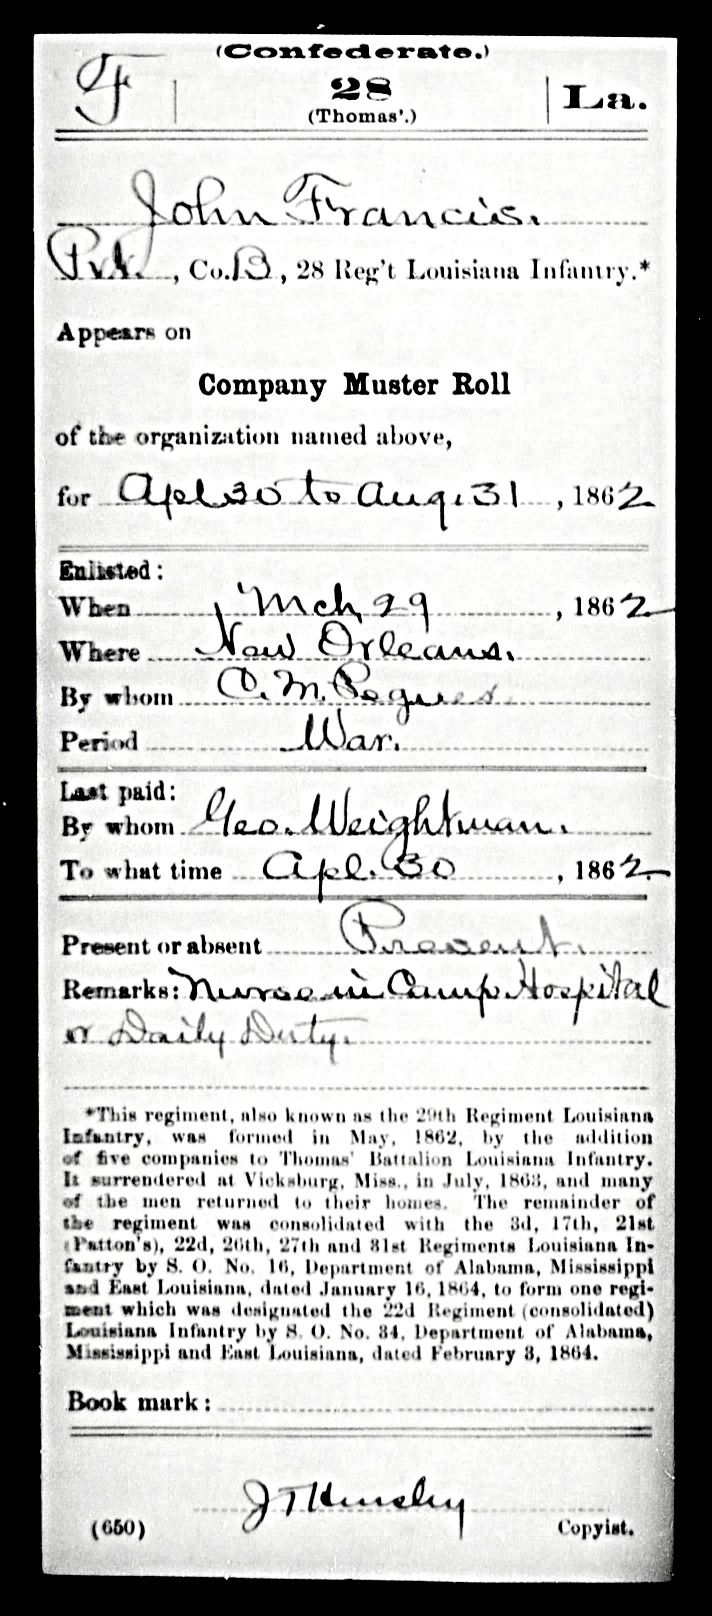 (Confederate.)
F | 28 | La.
(Thomas'.)
John Francis.
Pvt., Co. B, 28 Reg't Louisiana Infantry.*
Appears on
Company Muster Roll
of the organization named above,
for Apl 30 to Aug. 31, 1862
Enlisted:
When Mch 29, 1862
Where New Orleans.
By whom C. M. Pegues.
Period War.
Last paid:
By whom Geo. Weightman.
To what time Apl. 30, 1862.
Present or absent Present.
Remarks: Nurse in Camp Hospital
or Daily Duty.
*This regiment, also known as the 29th Regiment Louisiana
Infantry, was formed in May, 1862, by the addition
of five companies to Thomas' Battalion Louisiana Infantry.
It surrendered at Vicksburg, Miss., in July, 1863, and many
of the men returned to their homes. The remainder of
the regiment was consolidated with the 3d, 17th, 21st
(Patton's), 22d, 26th, 27th and 31st Regiments Louisiana In-
fantry by S. O. No. 16, Department of Alabama, Mississippi
and East Louisiana, dated January 16, 1864, to form one regi-
ment which was designated the 22d Regiment (consolidated)
Louisiana Infantry by S. O. No. 34, Department of Alabama,
Mississippi and East Louisiana, dated February 3, 1864.
Book mark:
J T Hensley
(650) Copyist.